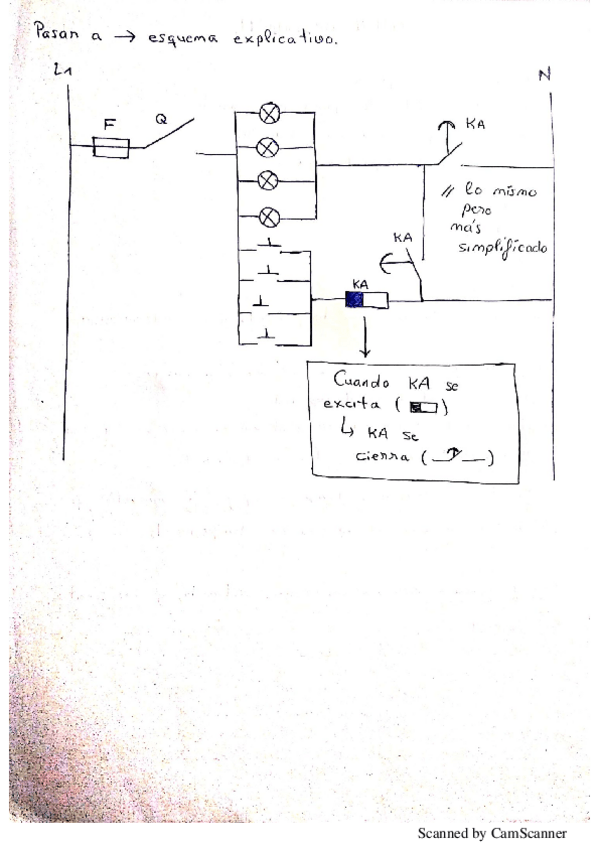 Pasan a → esquema explicativo.
L1
N
F
Q
KA
// lo mismo
pero
más
simplificado
KA
KA
Cuando KA se
excita ( )
↳ KA se
cierra ( )
Scanned by CamScanner